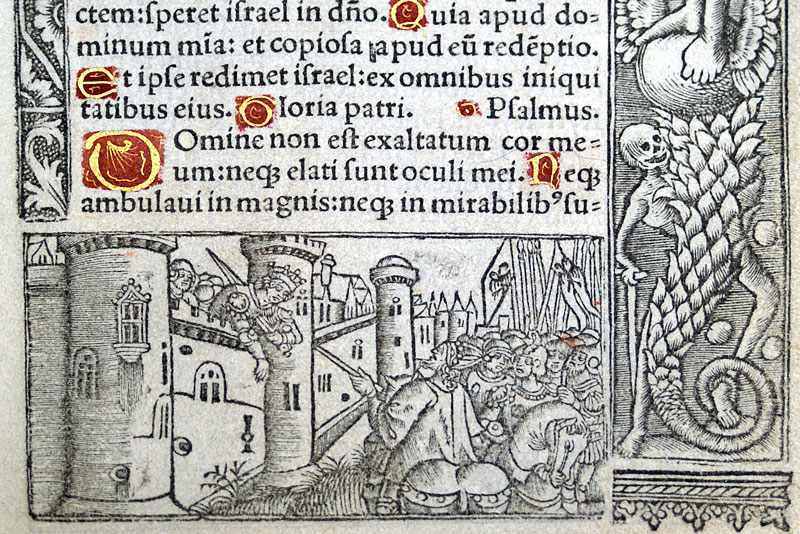 ctem:ſperet iſrael in dño. Quia apud do=
minum mīa: et copioſa apud eū redēptio.
Et ipſe redimet iſrael:ex omnibus iniqui
tatibus eius. Gloria patri. Pſalmus.
DOmine non eſt exaltatum cor me=
um:neqꝫ elati ſunt oculi mei. Neqꝫ
ambulaui in magnis:neqꝫ in mirabilibꝰ ſu=